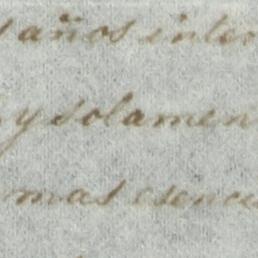 s años inter
y solamen
mas esencia